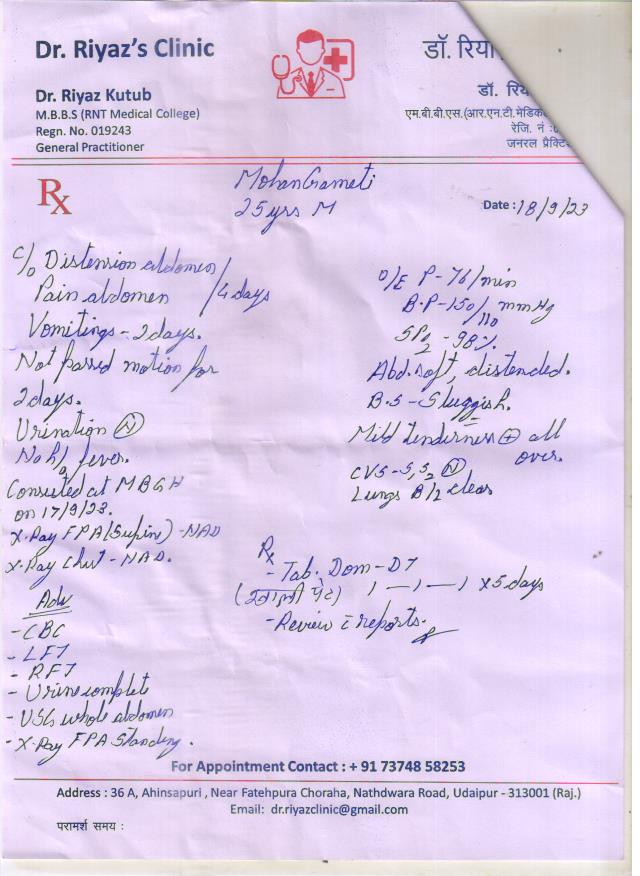 Dr. Riyaz's Clinic
डॉ. रिया
Dr. Riyaz Kutub
M.B.B.S (RNT Medical College)
Regn. No. 019243
General Practitioner
डॉ. रिय
एम.बी.बी.एस.(आर.एन.टी.मेडिक
रेजि. नं :
जनरल प्रैक्टि
Rx
Mohan Gameti
25yrs M
Date : 18/9/23
C/o Distension abdomen /
Pain abdomen / 4 days
Vomitings - 2 days.
Not passed motion for
2 days.
Urination (N)
No h/o fever.
Consulted at MBGH
on 17/9/23.
X-Ray FPA (Supine) - NAD
X-Ray Chest - NAD.
Adv
- CBC
- LFT
- RFT
- Urine complete
- USG whole abdomen
- X-Ray FPA Standing.
O/E P - 76/min
B.P - 150/110 mmHg
SPO2 - 98%.
Abd. soft, distended.
B.S - Sluggish.
Mild tenderness (+) all
over.
CVS - S1 S2 (N)
Lungs B/L clear
Rx
- Tab. Dom-DT
(खाली पेट) 1 — 1 — 1 x 5 days
- Review c̄ reports.
For Appointment Contact : + 91 73748 58253
Address : 36 A, Ahinsapuri , Near Fatehpura Choraha, Nathdwara Road, Udaipur - 313001 (Raj.)
Email: dr.riyazclinic@gmail.com
परामर्श समय :